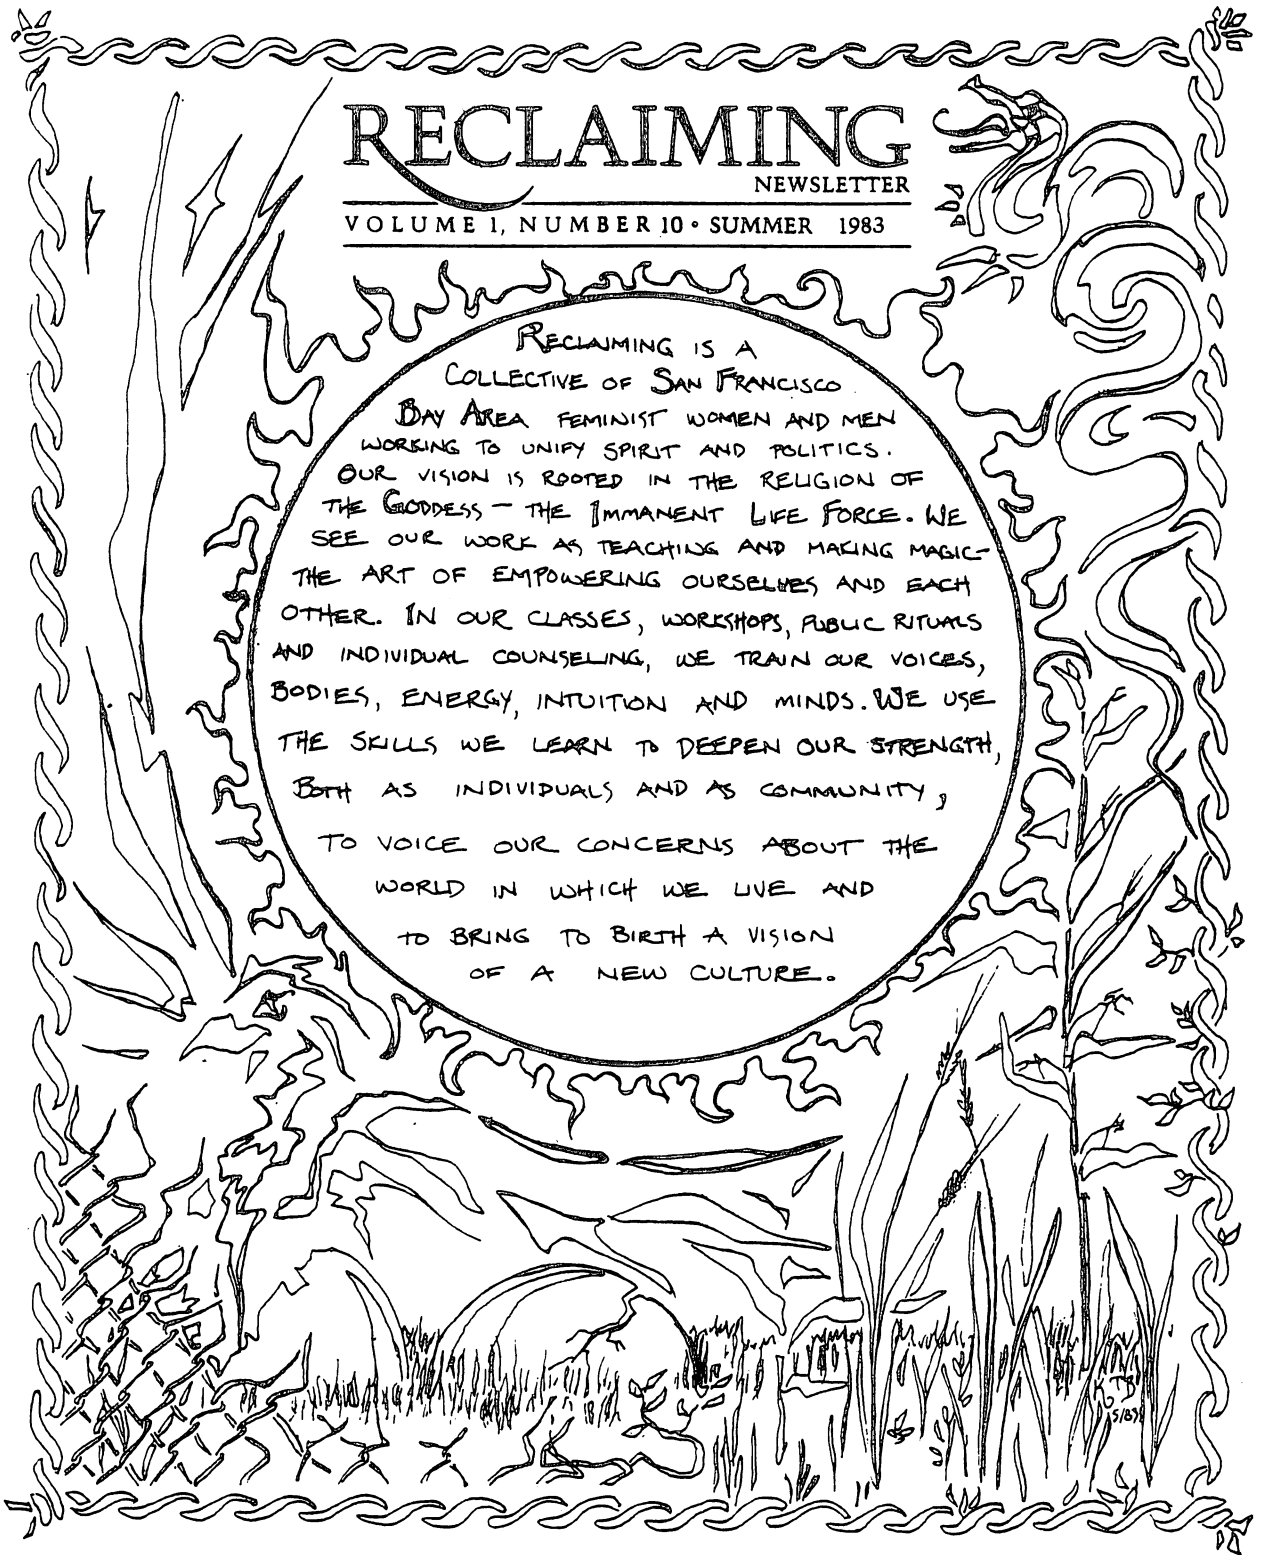 RECLAIMING
NEWSLETTER
VOLUME 1, NUMBER 10 • SUMMER 1983
RECLAIMING IS A
COLLECTIVE OF SAN FRANCISCO
BAY AREA FEMINIST WOMEN AND MEN
WORKING TO UNIFY SPIRIT AND POLITICS.
OUR VISION IS ROOTED IN THE RELIGION OF
THE GODDESS – THE IMMANENT LIFE FORCE. WE
SEE OUR WORK AS TEACHING AND MAKING MAGIC–
THE ART OF EMPOWERING OURSELVES AND EACH
OTHER. IN OUR CLASSES, WORKSHOPS, PUBLIC RITUALS
AND INDIVIDUAL COUNSELING, WE TRAIN OUR VOICES,
BODIES, ENERGY, INTUITION AND MINDS. WE USE
THE SKILLS WE LEARN TO DEEPEN OUR STRENGTH,
BOTH AS INDIVIDUALS AND AS COMMUNITY,
TO VOICE OUR CONCERNS ABOUT THE
WORLD IN WHICH WE LIVE AND
TO BRING TO BIRTH A VISION
OF A NEW CULTURE.